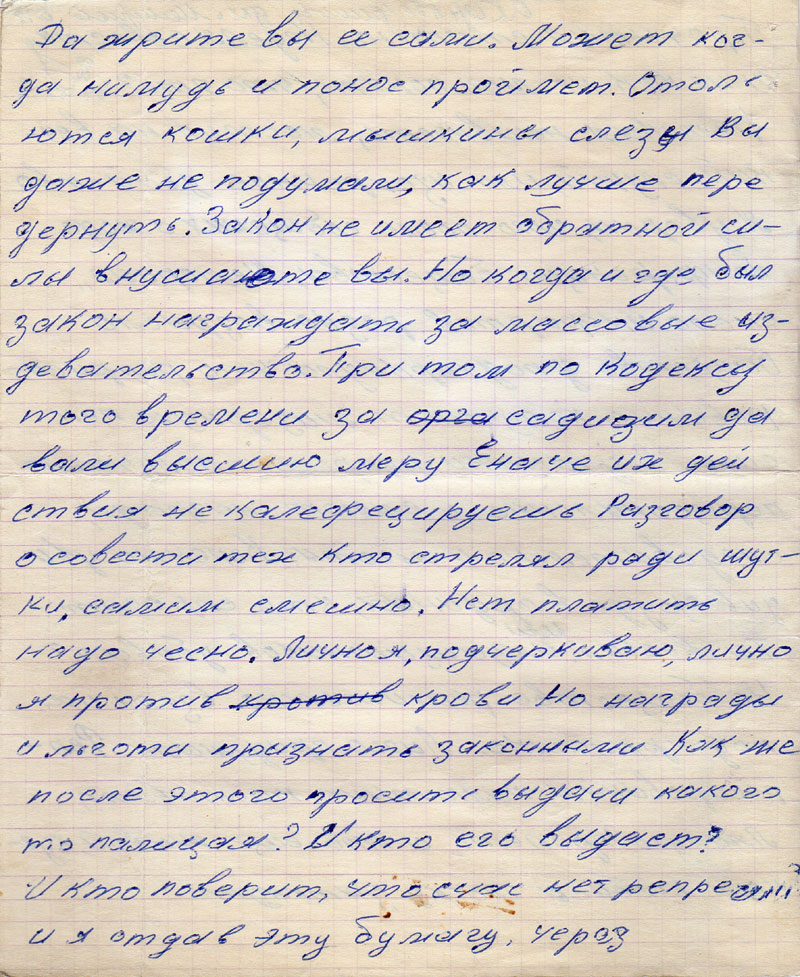 Да жрите вы ее сами. Может ког-
да нимудь и понос проймет. Отоль
ются кошки, мышкины слезы Вы
даже не подумали, как лучше пере
дернуть. Закон не имеет обратной си-
лы внушаете вы. Но когда и где был
закон награждать за массовые из-
девательство. При том по Кодексу
того времени за орга садизим да
вали высшию меру Еначе их дей
ствия не калефецируешь Разговор
о совести тех кто стрелял ради шут-
ки, самим смешно. Нет платить
надо чесно. Лично я, подчеркиваю, лично
я против кротив крови Но награды
и льготи признать законными Как же
после этого просить выдачи какого
то палицая? И кто его выдаст?
И кто поверит, что счас нет репресий?
и я отдав эту бумагу, через